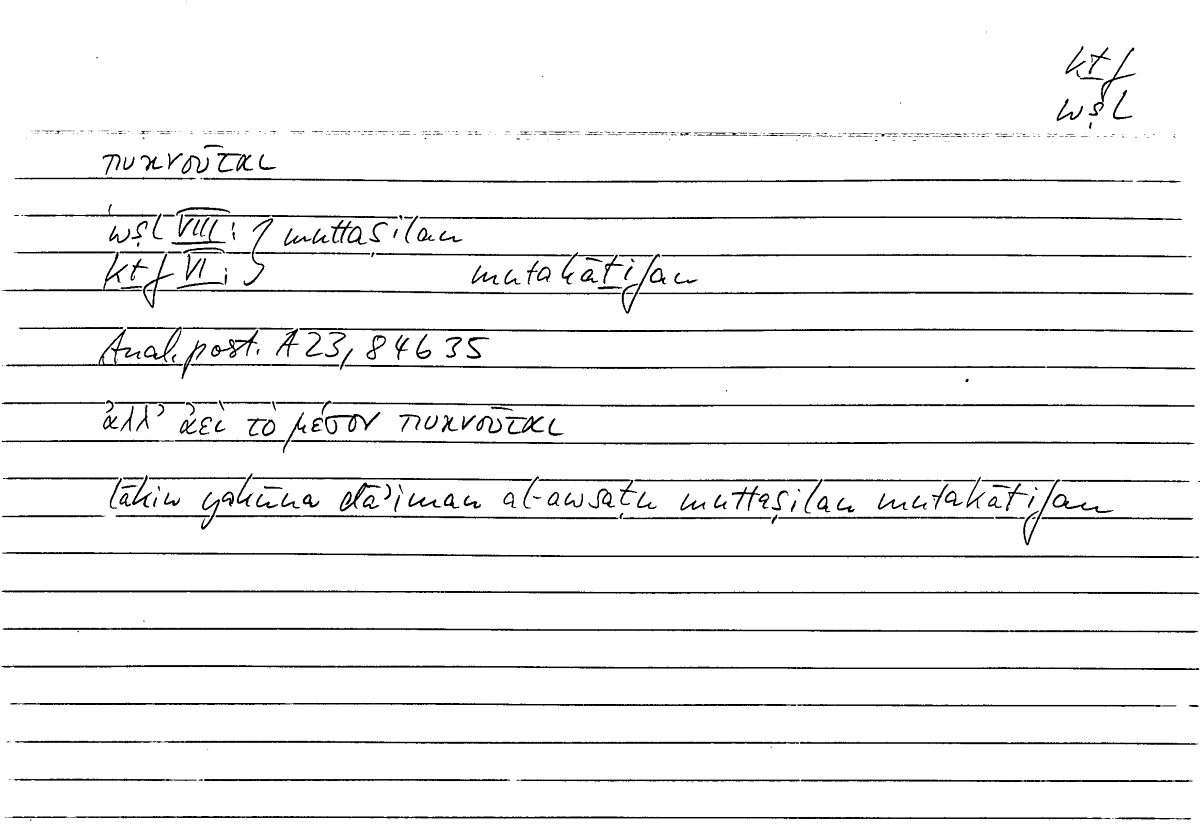 kṯf
wṣl
πυκνοῦται
wṣl VIII: } muttaṣilan
kṯf VI: } mutakāṯifan
Anal. post. A 23, 84 b 35
ἀλλ’ ἀεὶ τὸ μέσον πυκνοῦται
lākin yakūna dāʾiman al-awsaṭu muttaṣilan mutakāṯifan